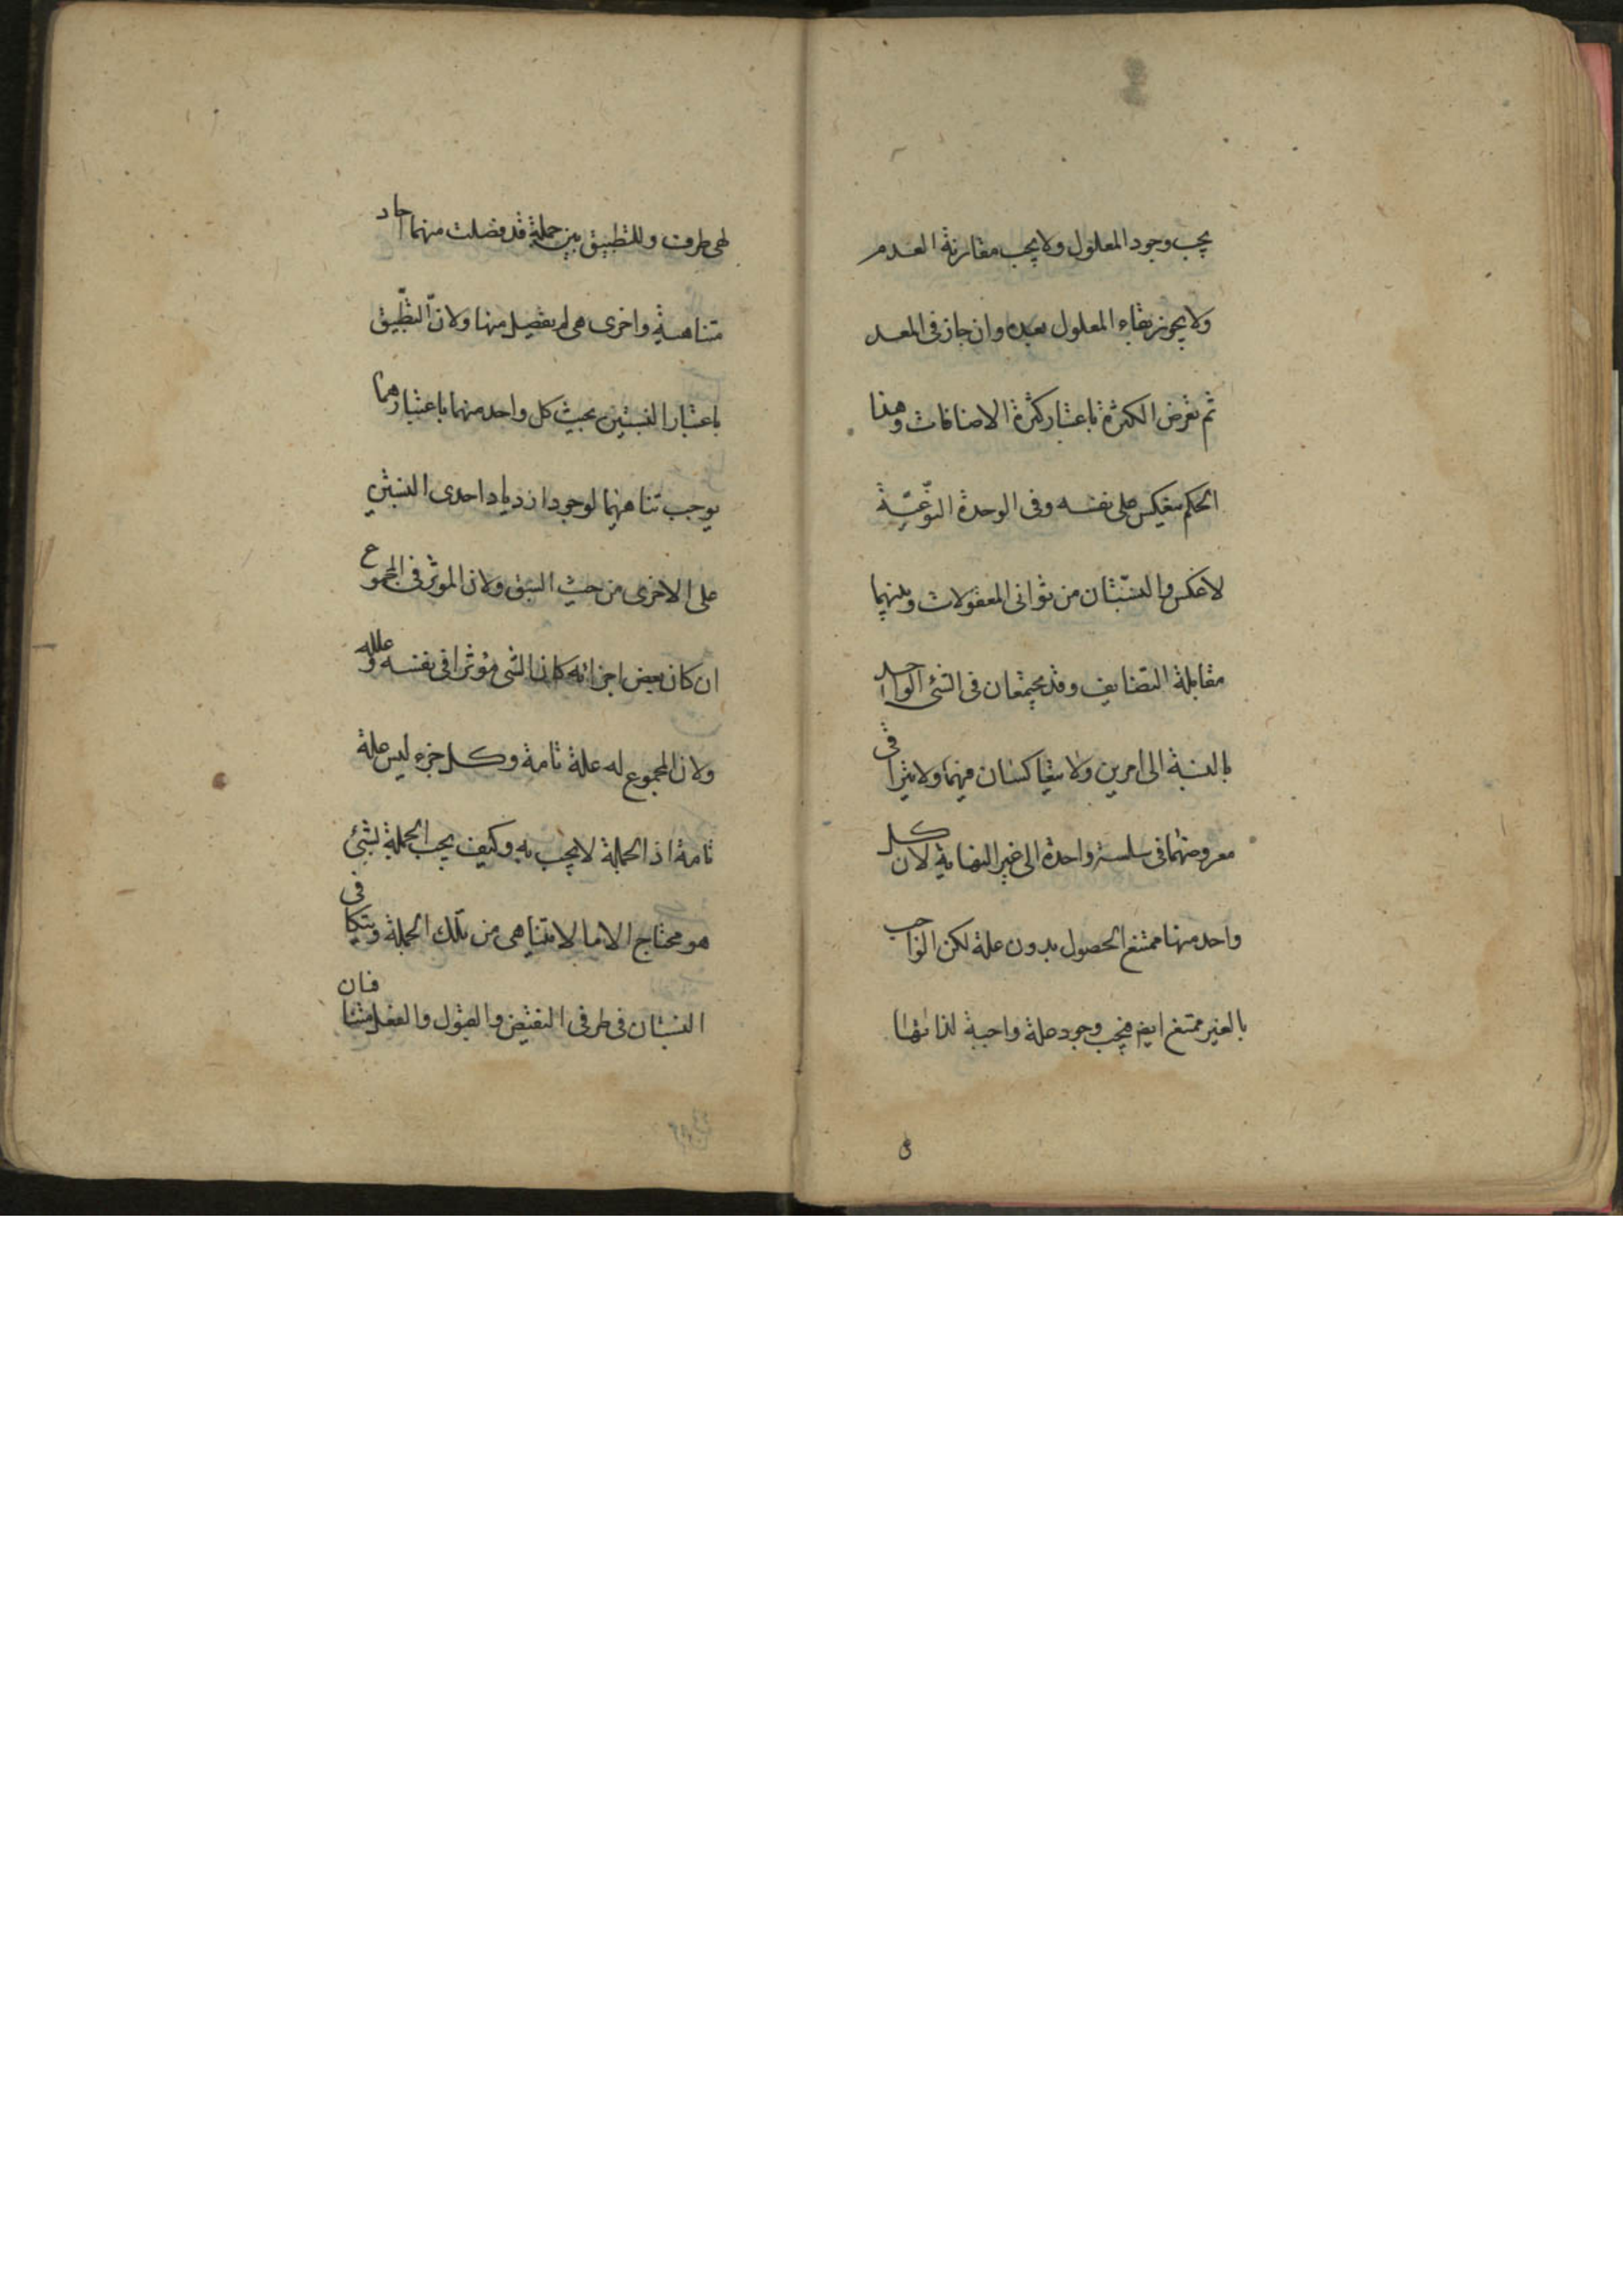 يجب وجود المعلول ولا يجب مقارنة العدم
ولا يجوز بقاء المعلول بعده وان جاز فى المعد
ثم تعرض الكثرة باعتبار كثرة الاضافات وهذا
الحكم ينعكس على نفسه وفى الوحدة النوعية
لا عكس والنسبتان من ثوانى المعقولات وبينهما
مقابلة التضايف وقد يجتمعان فى الشئ الواحد
بالنسبة الى امرين ولا يتعاكسان فيهما ولا يتراقى
معروضهما فى سلسة واحدة الى غير النهاية لان كل
واحد منها ممتنع الحصول بدون علة لكن الواجب
بالغير ممتنع ايض فيجب وجود علة واجبة لذاتها
هى طرف وللتطبيق بين جملة قد فصلت منهما احاد
متناهية واخرى هى لم يفصل منها ولان التطبيق
باعتبار النسبتين بحيث كل واحد منهما باعتبارهما
يوجب تناهيهما لوجود ازدياد احدى النسبتين
على الاخرى من حيث السبق ولان الموثر فى المجموع
ان كان بعض اجزائه كان الشى مؤثرا فى نفسه وعلله
ولان المجموع له علة تامة وكل جزء ليس علة
تامة اذ الجملة لا يجب به وكيف يجب الجملة بشئ
هو محتاج الا ما لا يتناهى من تلك الجملة ويتكافى
النسبتان فى طرفى النقيض والقبول والفعل متنافان